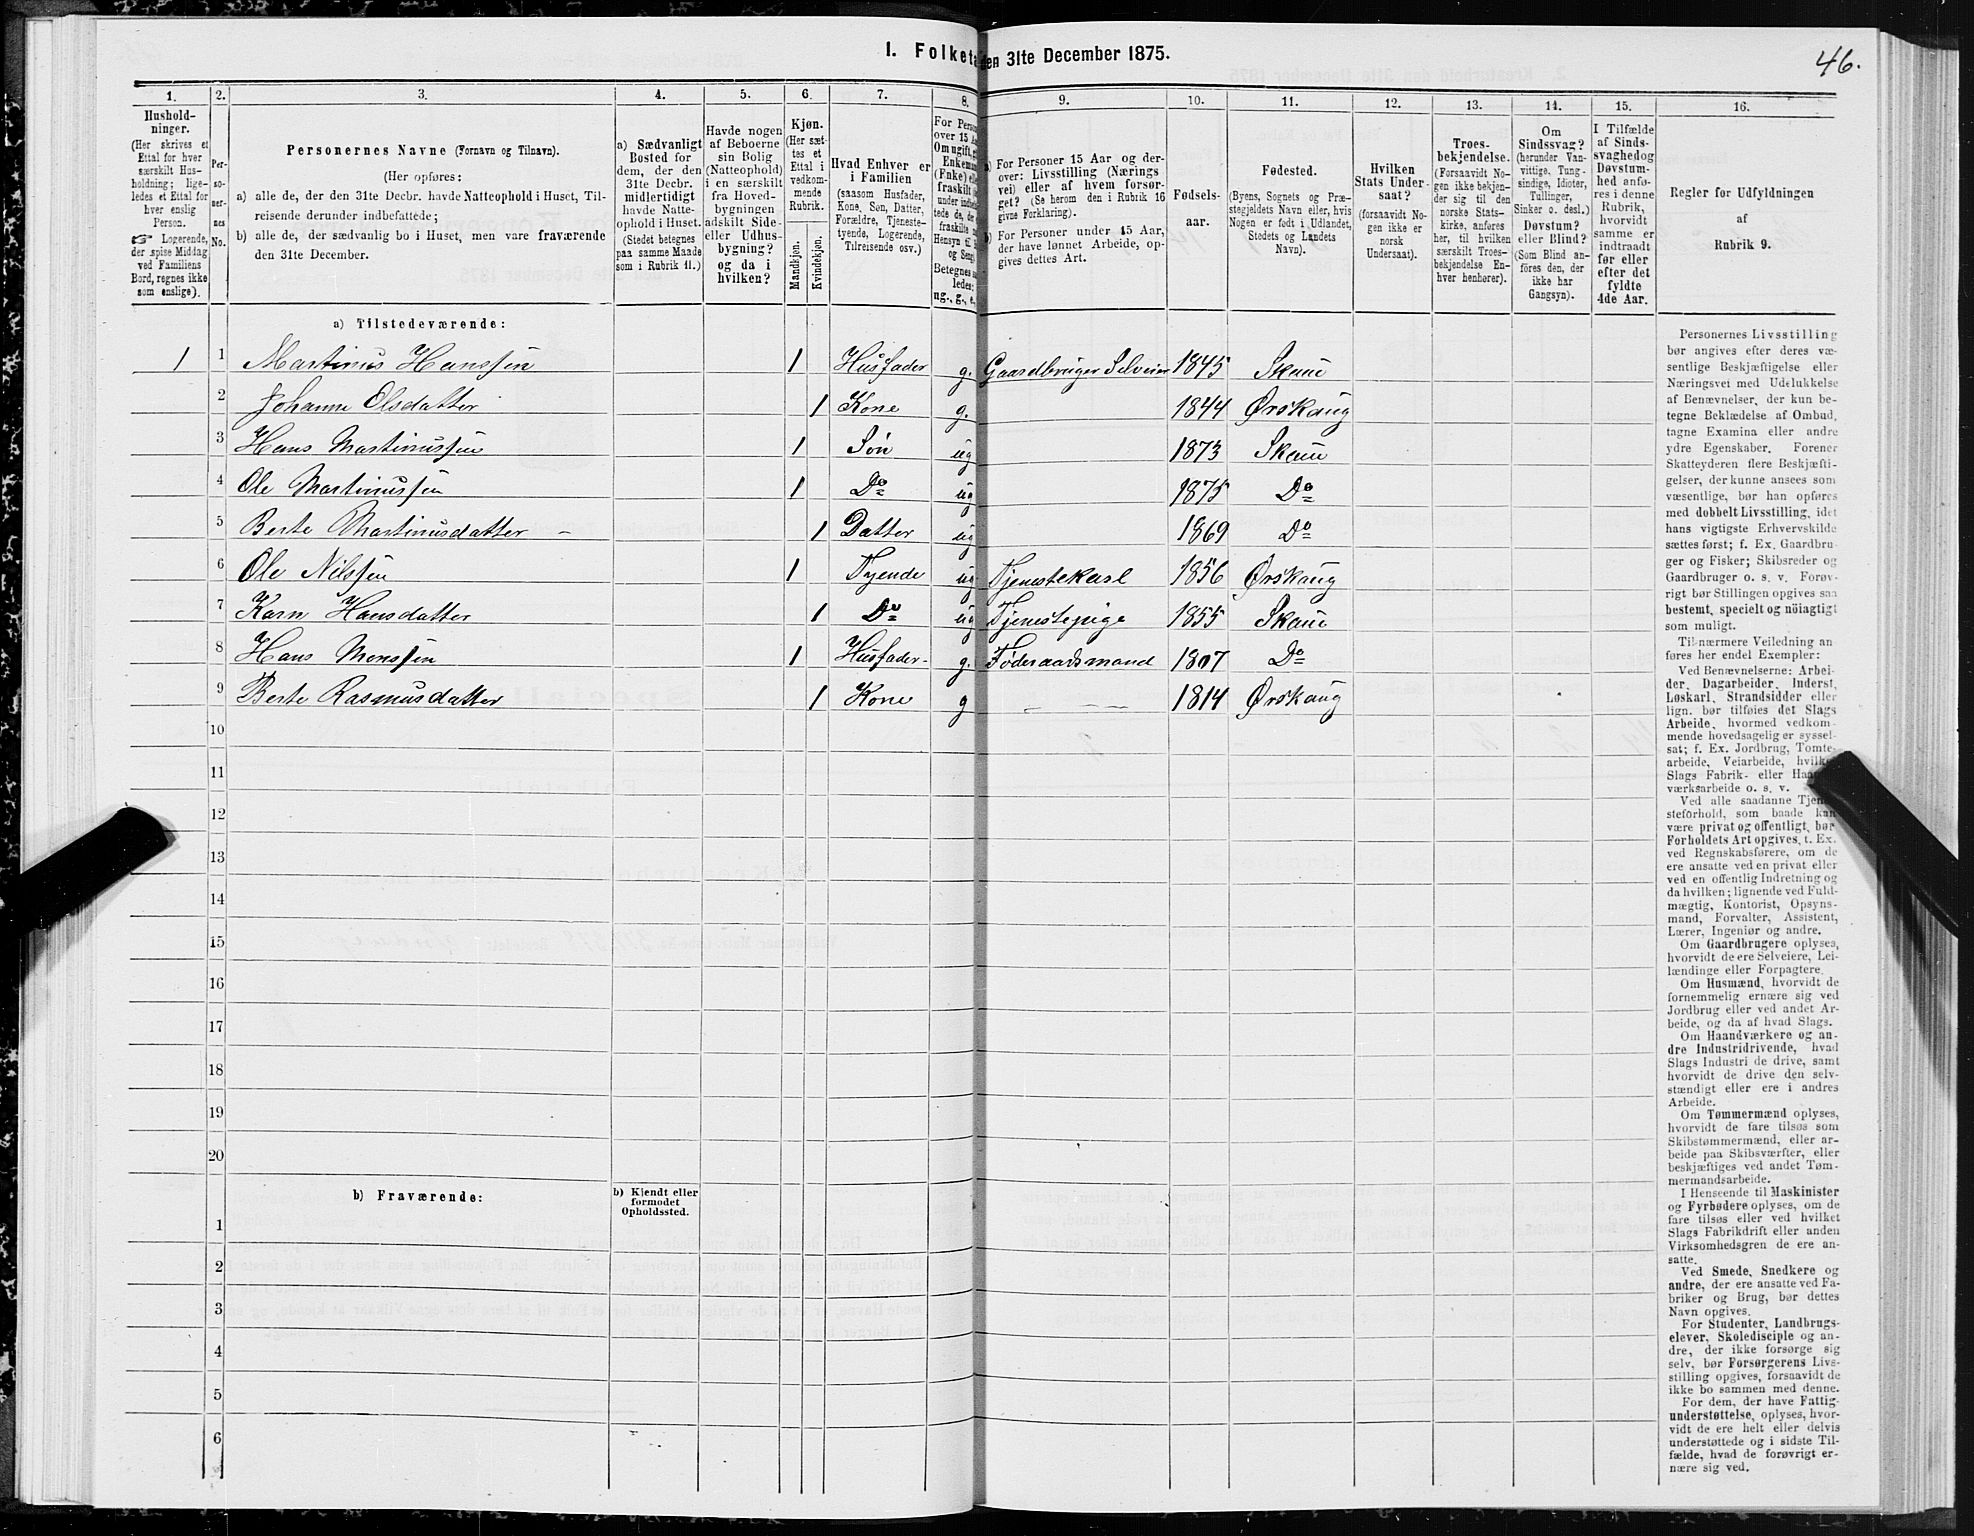 I. Folketæ den 31te December 1875.
46.
1. 2. 3. 4. 5. 6. 7. 8. 9. 10. 11. 12. 13. 14. 15. 16.
Hushold-
ninger.
(Her skrives et
Ettal for hver
særskilt Hus-
holdning; lige-
ledes et Ettal for
hver enslig
Person.
☞ Logerende,
der spise Middag
ved Familiens
Bord, regnes ikke
som enslige).
Per-
so-
ner-
nes
No.
Personernes Navne (Fornavn og Tilnavn).
(Her opføres:
a) alle de, der den 31te Decbr. havde Natteophold i Huset, Til-
reisende derunder indbefattede;
b) alle de, der sædvanlig bo i Huset, men vare fraværende
den 31te December.
a) Sædvanligt
Bosted for
dem, der den
31te Decbr.
midlertidigt
havde Natte-
ophold i Huset.
(Stedet betegnes
paa samme Maade
som i Rubrik 11.)
Havde nogen
af Beboerne
sin Bolig
(Natteophold)
i en særskilt
fra Hoved-
bygningen
adskilt Side-
eller Udhus-
bygning?
og da i
hvilken?
Kjøn.
(Her sæt-
tes et
Ettal i
vedkom-
mende
Rubrik.
Mandkjøn.
Kvindekjøn.
Hvad Enhver er
i Familien
(saasom Husfader,
Kone, Søn, Datter,
Forældre, Tjeneste-
tyende, Logerende,
Tilreisende osv.)
For Perso
over 15 A
Om ugift, g
Enkema
(Enke) el
fraskilt
under indb
tede de, d
fraskilte
Hensyn til
og Seng
Betegnes s
ledes:
ug., g., e.
a) For Personer 15 Aar og der-
over: Livsstilling (Nærings
vei) eller af hvem forsør-
get? (Se herom den i Rubrik 16
givne Forklaring).
b) For Personer under 15 Aar,
der have lønnet Arbeide, op-
gives dettes Art.
Fødsels-
aar.
Fødested.
(Byens, Sognets og Præ-
stegjeldets Navn eller, hvis
Nogen er født i Udlandet,
Stedets og Landets
Navn).
Hvilken
Stats Under-
saat?
(forsaavidt No-
gen ikke er
norsk
Undersaat).
Troes-
bekjendelse.
(Forsaavidt No-
gen ikke bekjen-
der sig til den
norske Stats-
kirke, anføres
her, til hvilken
særskilt Troes-
bekjendelse En-
hver henhører).
Om
Sindssvag?
(herunder Van-
vittige, Tung-
sindige, Idioter,
Tullinger,
Sinker o. desl.)
Døvstum?
eller Blind?
(Som Blind an-
føres den, der
ikke har
Gangsyn).
I Tilfælde
af Sinds-
svaghed og
Døvstum-
hed anfø-
res i denne
Rubrik,
hvorvidt
samme er
indtraadt
før eller
efter det
fyldte
4de Aar.
Regler for Udfyldningen
af
Rubrik 9.
a) Tilstedeværende:
1 1 Martinus Hanssen 1 Husfader g. Gaardbruger Selveier 1845 Skaue
2 Johanne Olsdatter 1 Kone g. 1844 Ørskaug
3 Hans Martinussen 1 Søn ug 1873 Skaue
4 Ole Martinussen 1 Do ug 1875 Do
5 Berte Martinusdatter - 1 Datter ug 1869 Do
6 Ole Nilssen 1 Tyende ug Tjenestekarl 1856 Ørskaug
7 Karn Hansdatter 1 Do ug Tjenestepige 1855 Skaue
8 Hans Monssen 1 Husfader- g. Føderaadsmand 1807 Do
9 Berte Rasmusdatter 1 Kone g — — — 1814 Ørskaug
10
11
12
13
14
15
16
17
18
19
20
b) Fraværende:
b) Kjendt eller
formodet
Opholdssted.
1
2
3
4
5
6
Personernes Livsstilling
bør angives efter deres væ-
sentlige Beskjæftigelse eller
Næringsvei med Udelukkelse
af Benævnelser, der kun be-
tegne Beklædelse af Ombud,
tagne Examina eller andre
ydre Egenskaber. Forener
Skatteyderen flere Beskjæfti-
gelser, der kunne ansees som
væsentlige, bør han opføres
med dobbelt Livsstilling, idet
hans vigtigste Erhvervskilde
sættes først; f. Ex. Gaardbru-
ger og Fisker; Skibsreder og
Gaardbruger o. s. v. Forøv-
rigt bør Stillingen opgives saa
bestemt, specielt og nöiagtigt
som muligt.
Til nærmere Veiledning an
føres her endel Exempler:
Ved Benævnelserne: Arbei-
der, Dagarbeider, Inderst,
Løskarl, Strandsidder eller
lign. bør tilføies det Slags
Arbeide, hvormed vedkom-
mende hovedsagelig er syssel-
sat; f. Ex. Jordbrug, Tomte-
arbeide, Veiarbeide, hvilket
Slags Fabrik- eller Haand-
værksarbeide o. s. v.
Ved alle saadanne Tjene-
steforhold, som baade kan
være privat og offentligt, bør
Forholdets Art opgives, t. Ex.
ved Regnskabsførere, om de
ere ansatte ved en privat eller
ved en offentlig Indretning og
da hvilken; lignende ved Fuld-
mægtig, Kontorist, Opsyns-
mand, Forvalter, Assistent,
Lærer, Ingeniør og andre.
Om Gaardbrugere oplyses,
hvorvidt de ere Selveiere, Lei-
lændinge eller Forpagtere.
Om Husmænd, hvorvidt de
fornemmelig ernære sig ved
Jordbrug eller ved andet Ar-
beide, og da af hvad Slags.
Om Haandværkere og an-
dre Industridrivende, hvad
Slags Industri de drive, samt
hvorvidt de drive den selv-
stændigt eller ere i andres
Arbeide.
Om Tømmermænd oplyses,
hvorvidt de fare tilsøs som
Skibstømmermænd, eller ar-
beide paa Skibsværfter, eller
beskjæftiges ved andet Tøm-
mermandsarbeide.
I Henseende til Maskinister
og Fyrbødere oplyses, om de
fare tilsøs eller ved hvilket
Slags Fabrikdrift eller anden
Virksomhedsgren de ere an-
satte.
Ved Smede, Snedkere og
andre, der ere ansatte ved Fa-
briker og Brug, bør dettes
Navn opgives.
For Studenter, Landbrugs-
elever, Skoledisciple og an-
dre, der ikke forsørge sig
selv, bør Forsørgerens Livs-
stilling opgives, forsaavidt de
ikke bo sammen med denne.
For dem, der have Fattig-
understøttelse, oplyses, hvor-
vidt de ere helt eller delvis
understøttede og i sidste Til-
fælde, hvad de forøvrigt er-
nære sig ved.